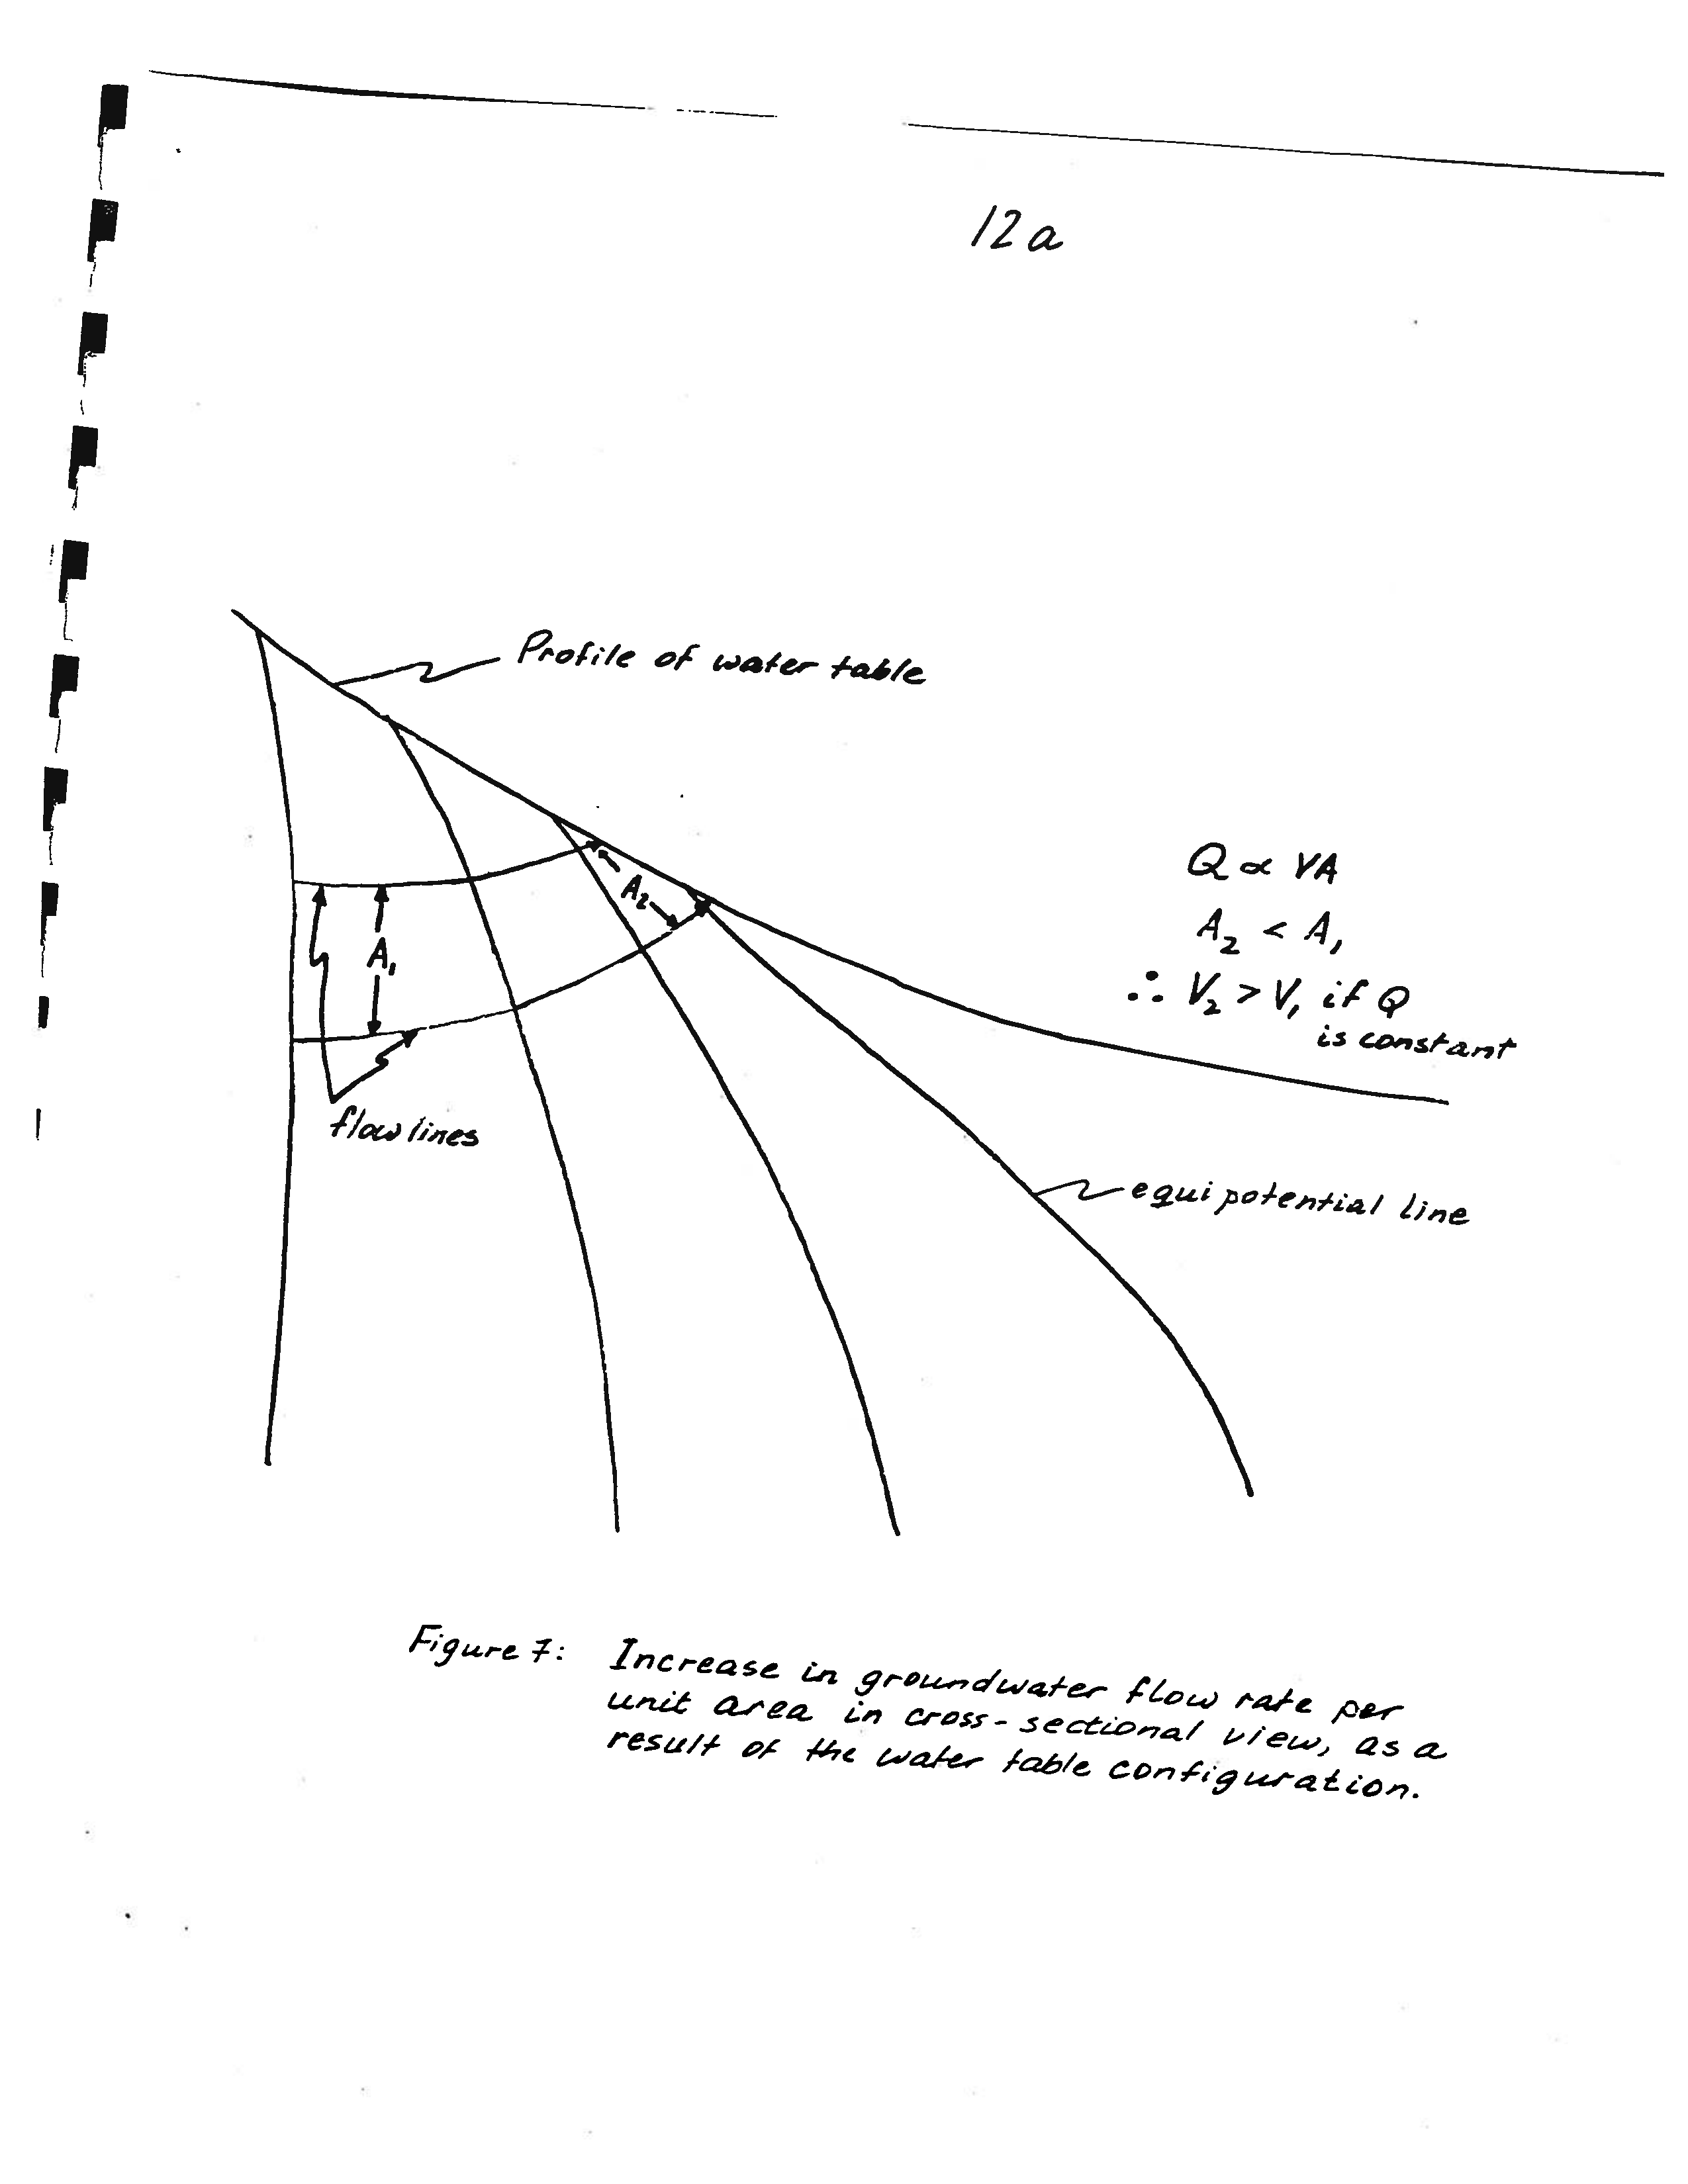 12a
Profile of water table
Q ∝ VA
A₂ < A₁
∴ V₂ > V₁ if Q
is constant
A₂
A₁
flow lines
equipotential line
Figure 7: Increase in groundwater flow rate per
unit area in cross-sectional view, as a
result of the water table configuration.